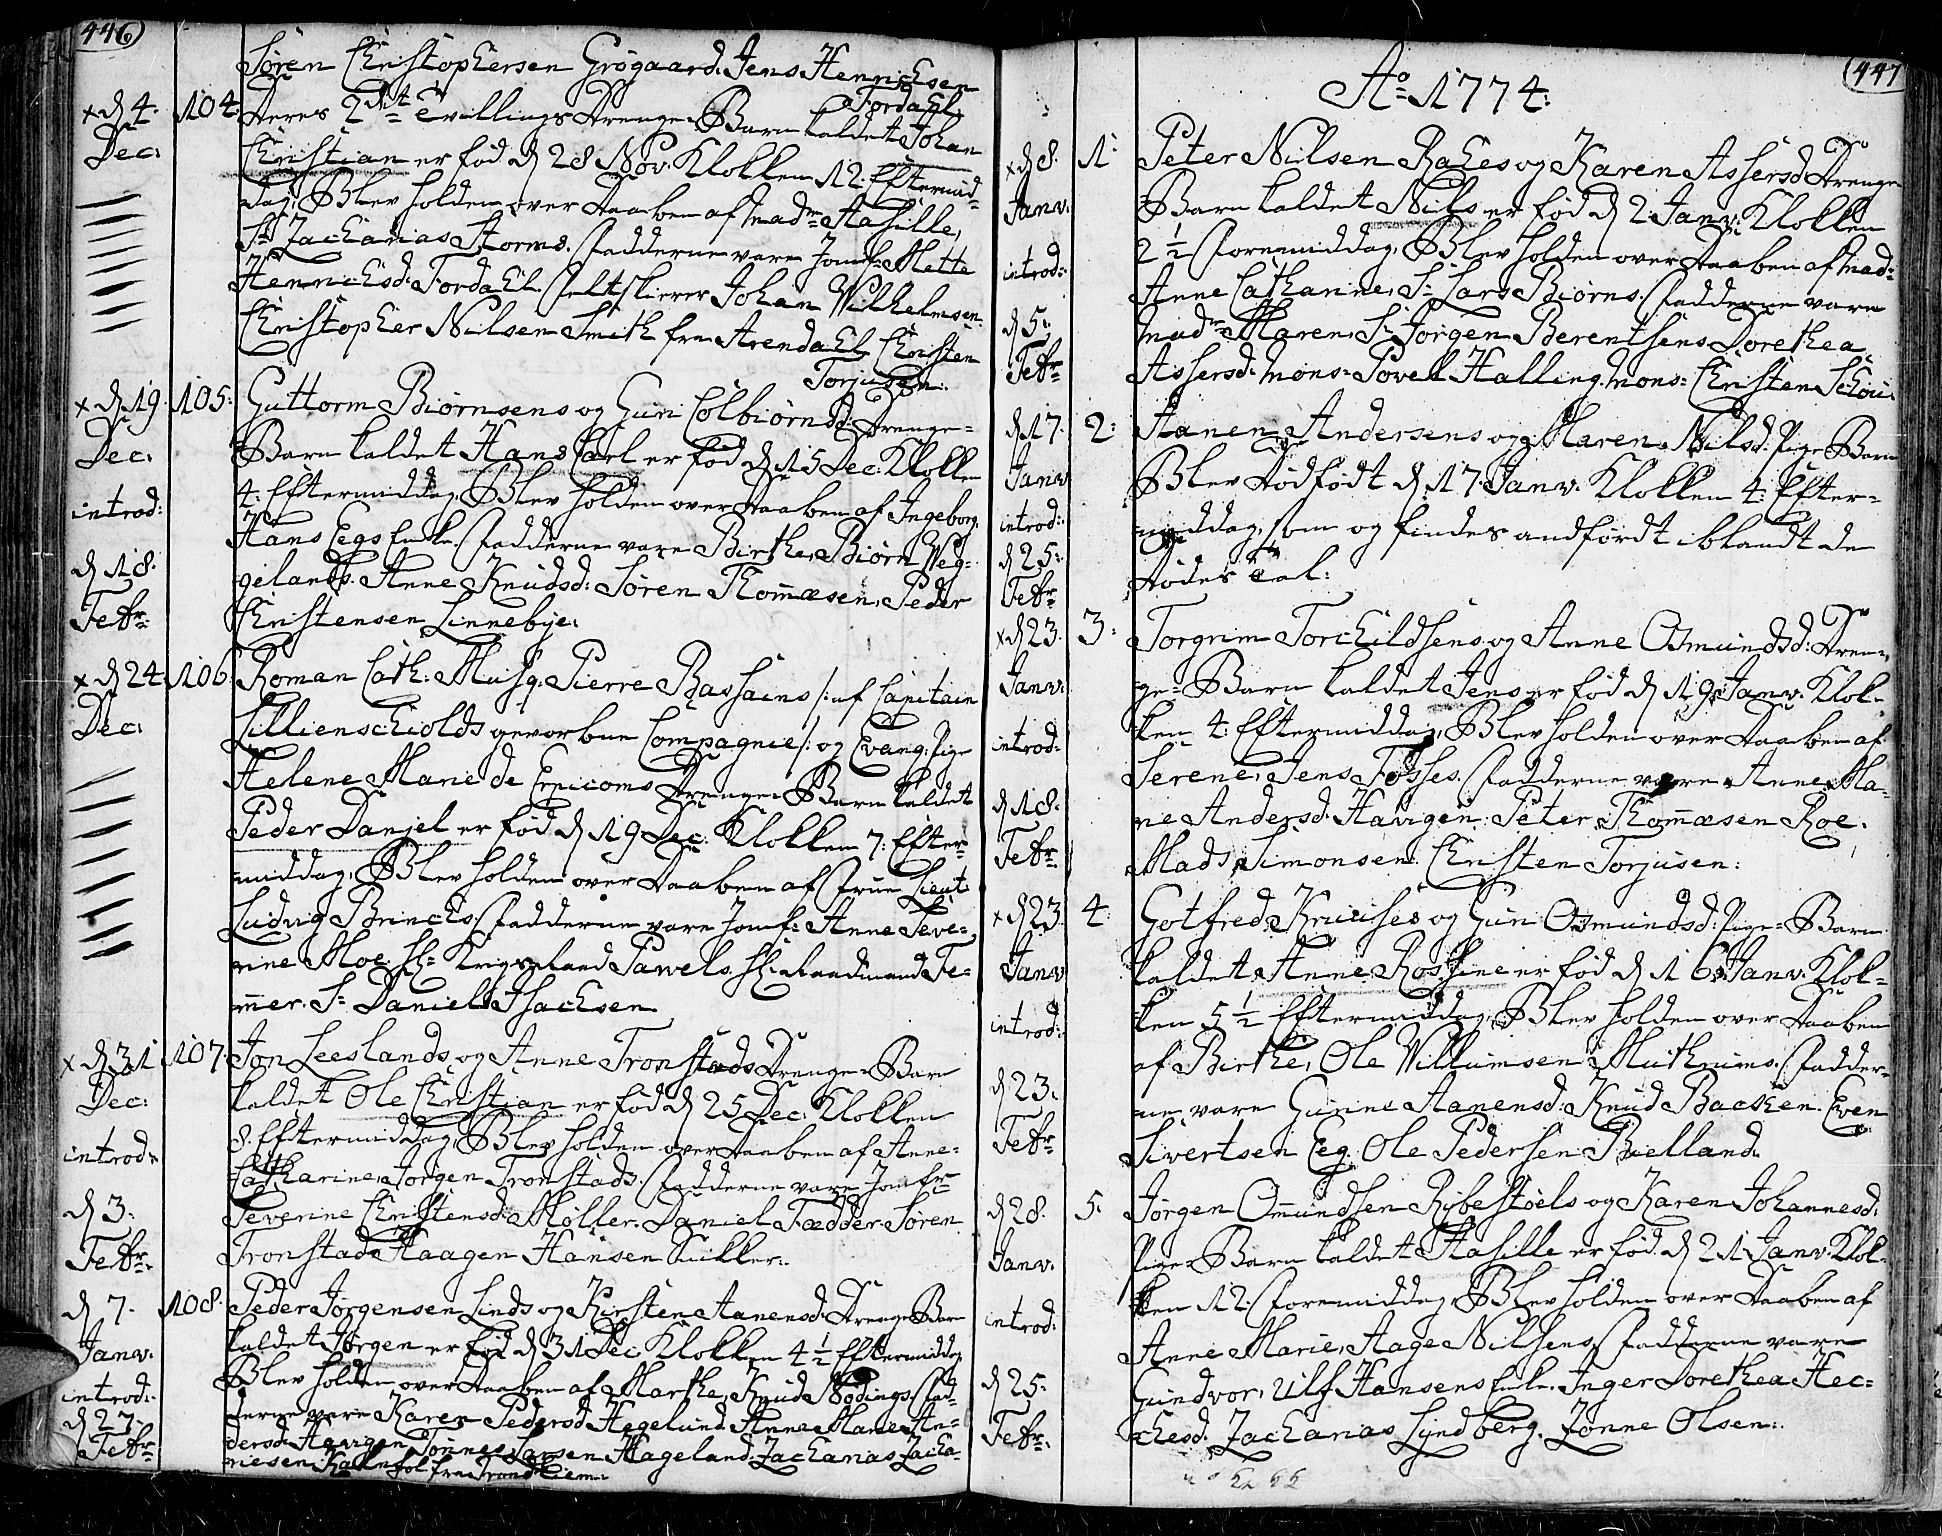 446
Søren Christophersen Grøgaard. Jens Henrichsen
Fordahl.
x d 4. 104. Deres 2det Tvillings Drenge-Barn kaldet Johan
Dec: Christian er fød d 28 Nov. Klokken 12. Eftermid-
dag, Blev holden over Daaben af Madme Aasille,
Sr Zacharias Storms. Fadderne vare Jomfr: Mette
Henrichsd: Fordahl. Feltskierer Johan Wilhelmsen.
Christopher Nilsen Smith fra Arendahl. Christen
Torjusen.
x d 19. 105. Guttorm Biørnsens og Guri Colbiørnsd: Drenge-
Dec: Barn kaldet Hans Carl er fød d 15 Dec: Klokken
4. Eftermiddag, Blev holden over Daaben af Ingeborg,
introd: Hans Eegs Enke. Fadderne vare Birthe, Biørn Weg-
d 18. gelands. Anne Knudsd: Søren Thommæsen. Peder
Febr: Christensen Linnebye.
x d 24. 106. Roman Cath: Musq: Pierre Bassains /: af Capitain
Dec: Lillienschiolds gevorbne Compagnie :/ og Evang: Pige
Helene Marie de Drenge-Barn kaldet
Peder Daniel er fød d 19 Dec: Klokken 7. Efter-
middag, Blev holden over Daaben af Frue Lieut:
Ludvig Brinchs. Fadderne vare Jomf: Anne Seve-
rine Moe. Hr: Krigsraad Pawels. Hr: Raadmand Fe-
mer. Sr Daniel Isachsen.
x d 31. 107. Jon Leeslands og Anne Tronstads Drenge-Barn
Dec: kaldet Ole Christian er fød d 25 Dec: Klokken
8. Eftermiddag, Blev holden over Daaben af Anne
introd: Catharine, Jørgen Tronstads. Fadderne vare Jomfr
d 3. Severine Christensd: Møller. Daniel Fædder. Søren
Febr: Tronstad. Haagen Hansen
d 7. 108. Peder Jørgensen Linds og Kirsten Aanensd: Drenge-Barn
Janv. kaldet Jørgen er fød d 31 Dec: Klokken 4 1/2 Eftermiddag
introd: Blev holden over Daaben af Marthe, Knud Nødings. Fad-
d 27. derne vare Karen Pedersd: Hegelund. Anne Marie An-
Febr: dersd: Havigen. Tønnes Larsen Hageland. Zacharias Zacha-
riesen fra Trondhiem.
447
Ao 1774.
x d 8. 1. Peter Nilsen Rahes og Karen Assersd: Drenge-
Janv. Barn kaldet Nils er fød d 2 Janv. Klokken
2 1/2 Formiddag, Blev holden over Daaben af Mad:
introd: Anne Catharine, Sr Lars Biørns. Fadderne vare
d 5. Madme Maren, Sr Jørgen Berentsens. Dorethea
Febr: Assersd: Mons: Povel Halling. Mons: Christen Schou.
d 17. 2. Aanen Andersens og Maren Nilsd: Pige-Barn
Janv. Blev dødfødt d 17. Janv. Klokken 4. Efter-
introd: middag, som og findes andført iblandt de
d 25. dødes Tal.
Febr:
x d 23. 3. Torgrim Torchildsens og Anne Osmundsd: Dren-
Janv. ge-Barn kaldet Jens er fød d 19 Janv. Klok-
introd: ken 4. Eftermiddag, Blev holden over Daaben af
Serene, Jens Fosses. Fadderne vare Anne Ma-
d 18. rie Andersd: Havigen. Peter Thommæsen Roe.
Febr: Mads Simonsen. Christen Torjusen.
x d 23. 4. Gotfred Kruses og Guri Osmundsd: Pige-Barn
Janv. kaldet Anne Rossine er fød d 16 Janv. Klok-
introd: ken 5 1/2 Eftermiddag, Blev holden over Daaben
af Birthe, Ole Willumsen Fadder-
d 23. ne vare Gunne Aanensd: Knud Backen. Even
Febr: Sivertsen Eeg. Ole Pedersen Bielland.
d 28. 5. Jørgen Omundsen Rybestøels og Karen Johannesd:
Janv. Pige-Barn kaldet Aasille er fød d 21 Janv. Klok-
ken 12. Formiddag, Blev holden over Daaben af
introd: Anne Marie, Aage Nilsens. Fadderne vare
d 25. Gundvor, Ulf Hansens Enke. Inger Dorethea Hec-
Febr: chesd: Zacharias Lyndberg. Zonne Olsen.